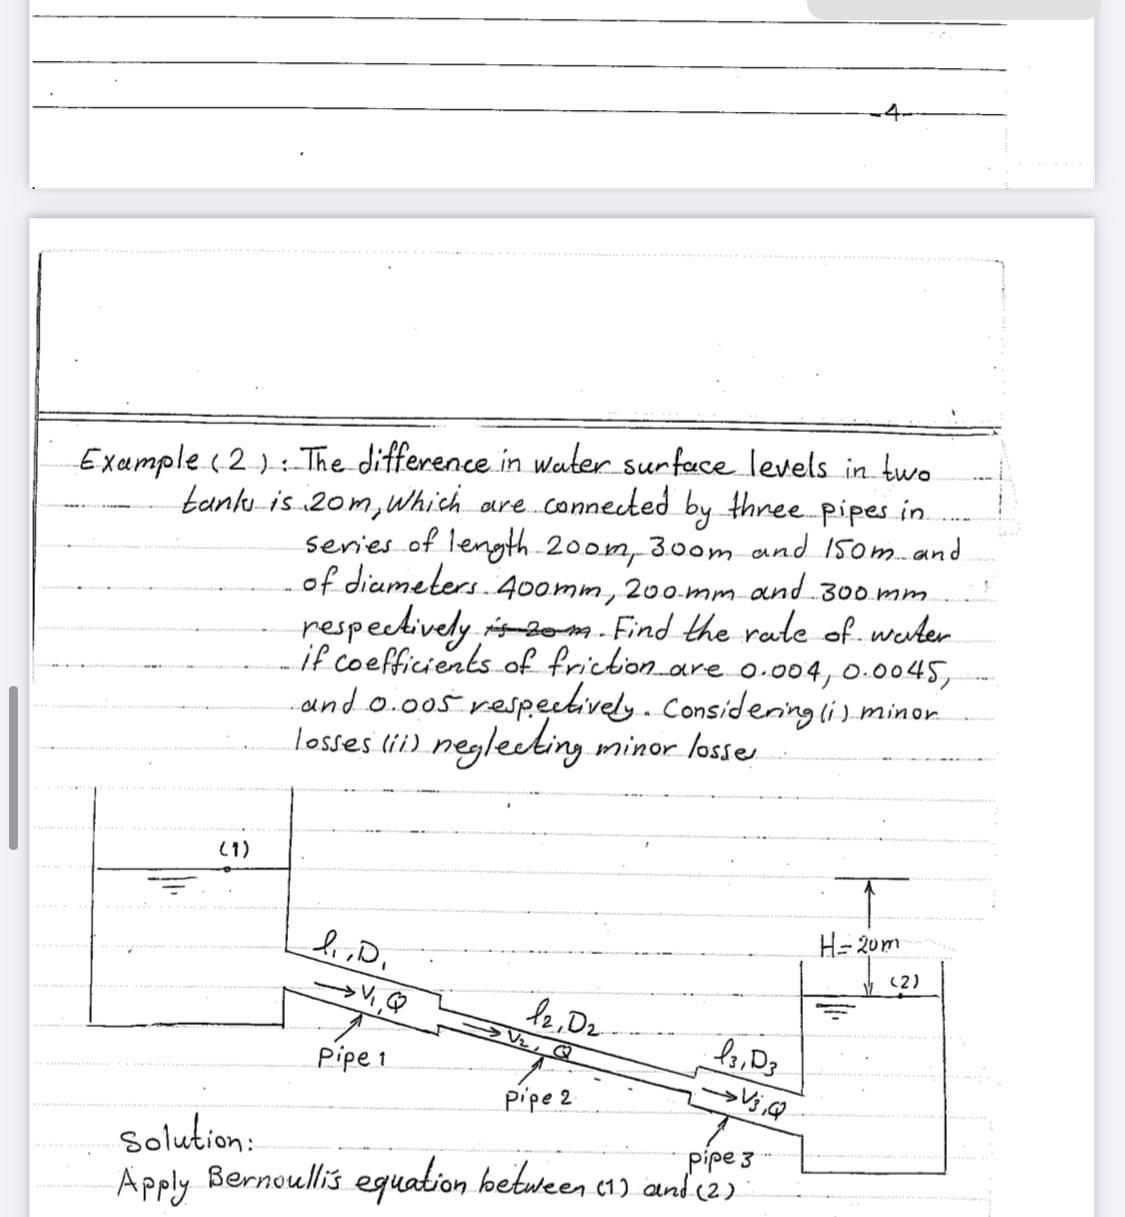 -4-
Example (2) :- The difference in water surface levels in two
tanks is 20m, Which are connected by three pipes in
series of length 200m, 300m and 150m and
of diameters 400mm, 200mm and 300mm
respectively is 20m. Find the rate of water
if coefficients of friction are 0.004, 0.0045,
and 0.005 respectively. Considering (i) minor
losses (ii) neglecting minor losses
(1)
H=20m
(2)
l1, D1
V1, Q
Pipe 1
l2, D2
V2, Q
Pipe 2
l3, D3
V3, Q
pipe 3
Solution:
Apply Bernoulli's equation between (1) and (2)